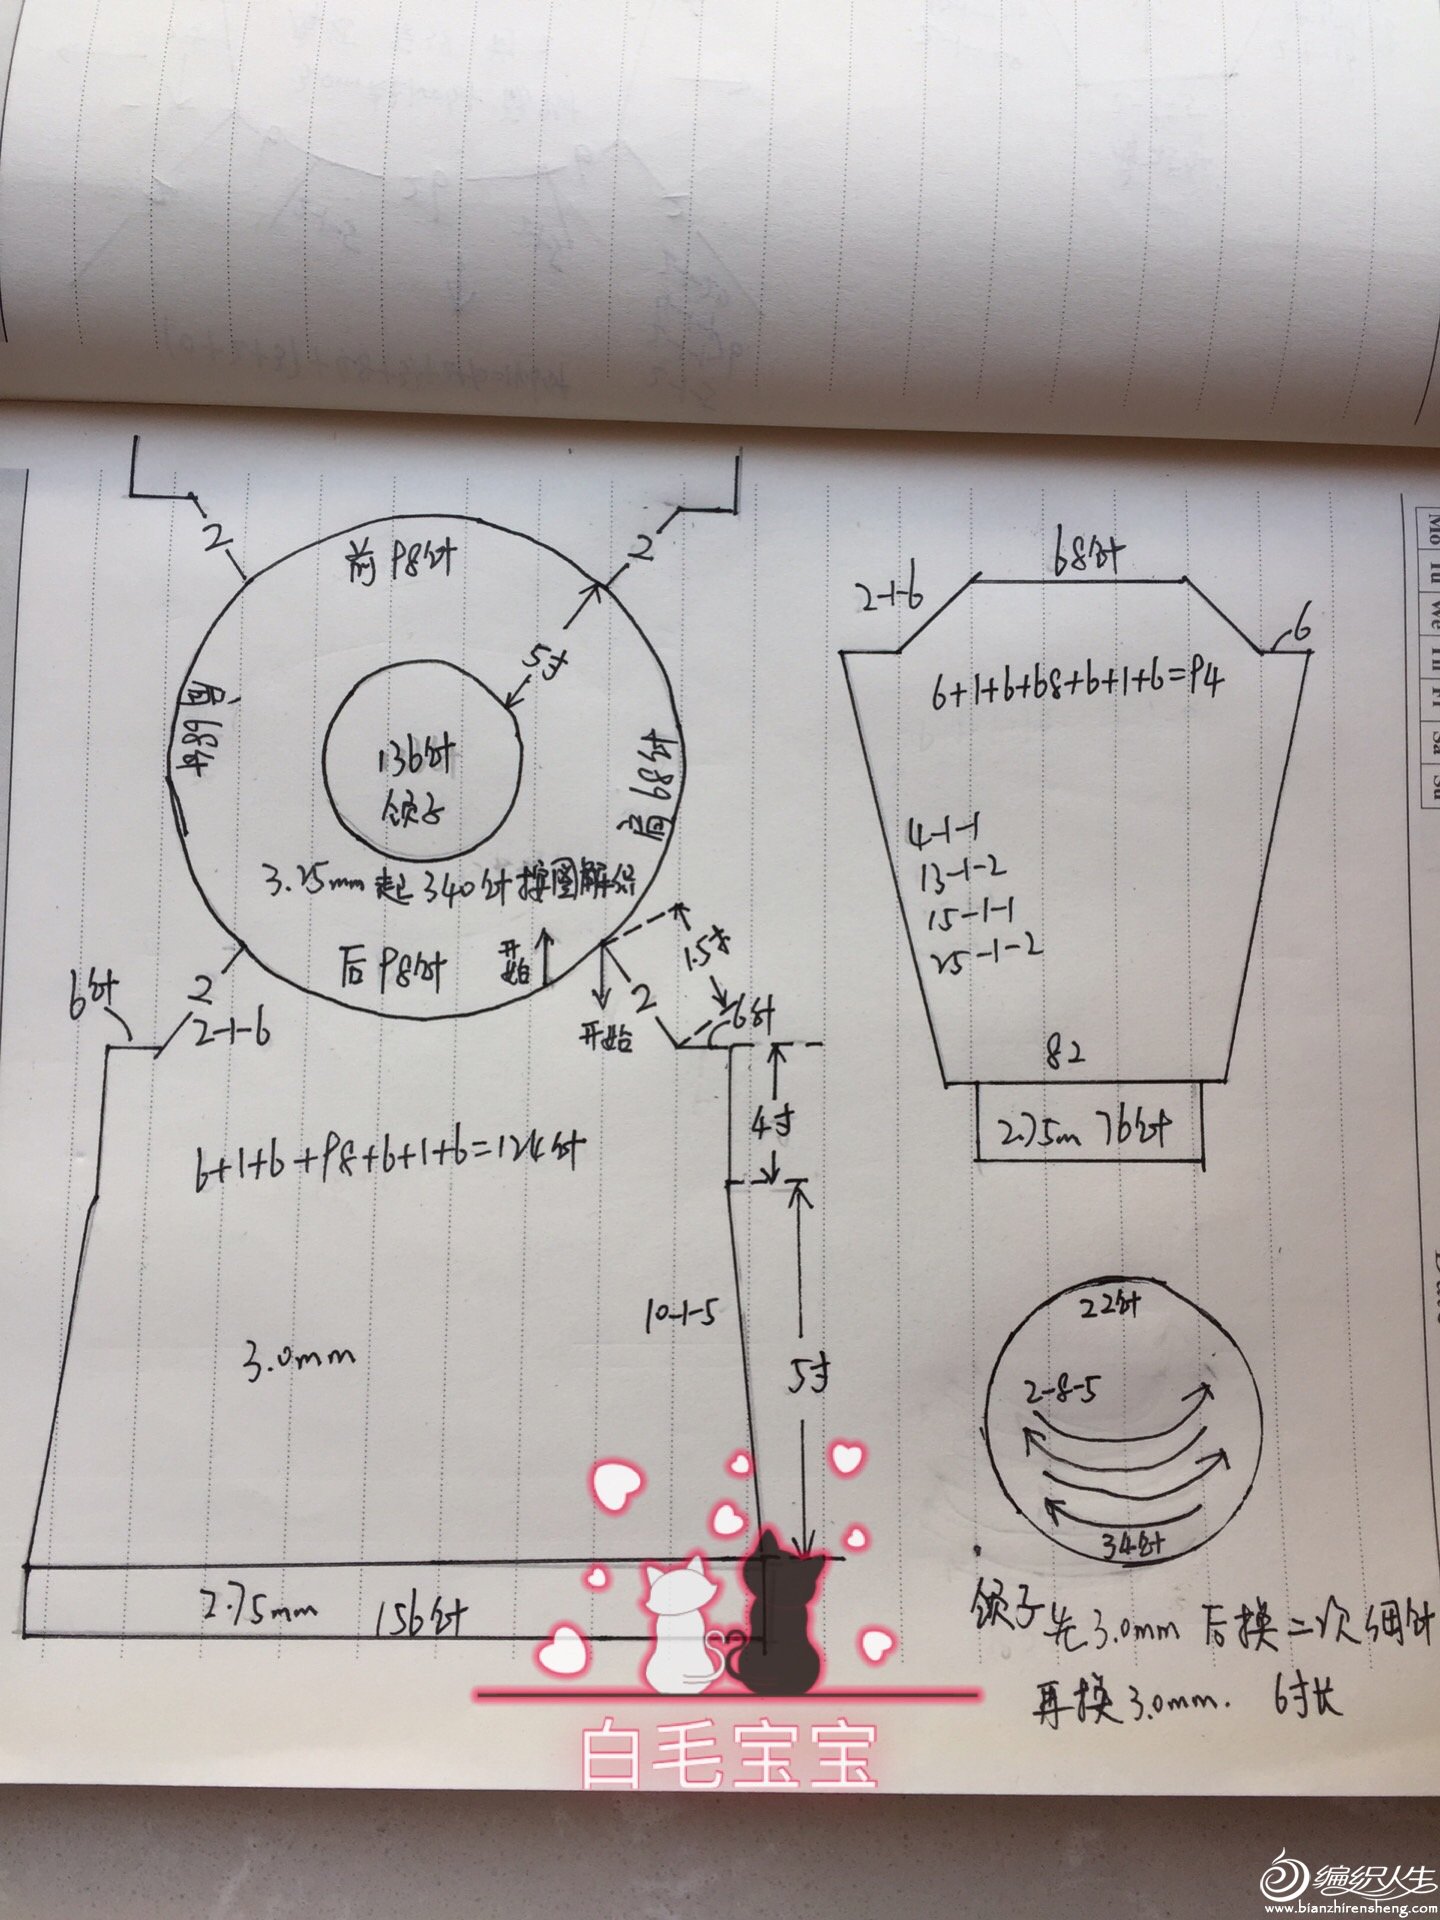 2
2
前 98针
5寸
肩 68针
肩 68针
136针
领子
3.25mm 起 340针 按图解织
后 98针
开始
开始
1.5寸
6针
2
2-1-6
2
6针
4寸
6+1+6+98+6+1+6=124针
10-1-5
3.0mm
5寸
2.75mm 156针
68针
2-1-6
6
6+1+6+68+6+1+6=94
4-1-1
13-1-2
15-1-1
25-1-2
82
2.75m 76针
22针
2-8-5
34针
领子先3.0mm 后换二次细针
再换3.0mm. 6寸长
Mo
Tu
We
Fr
Sa
Su
白毛宝宝
编织人生
www.bianzhirensheng.com